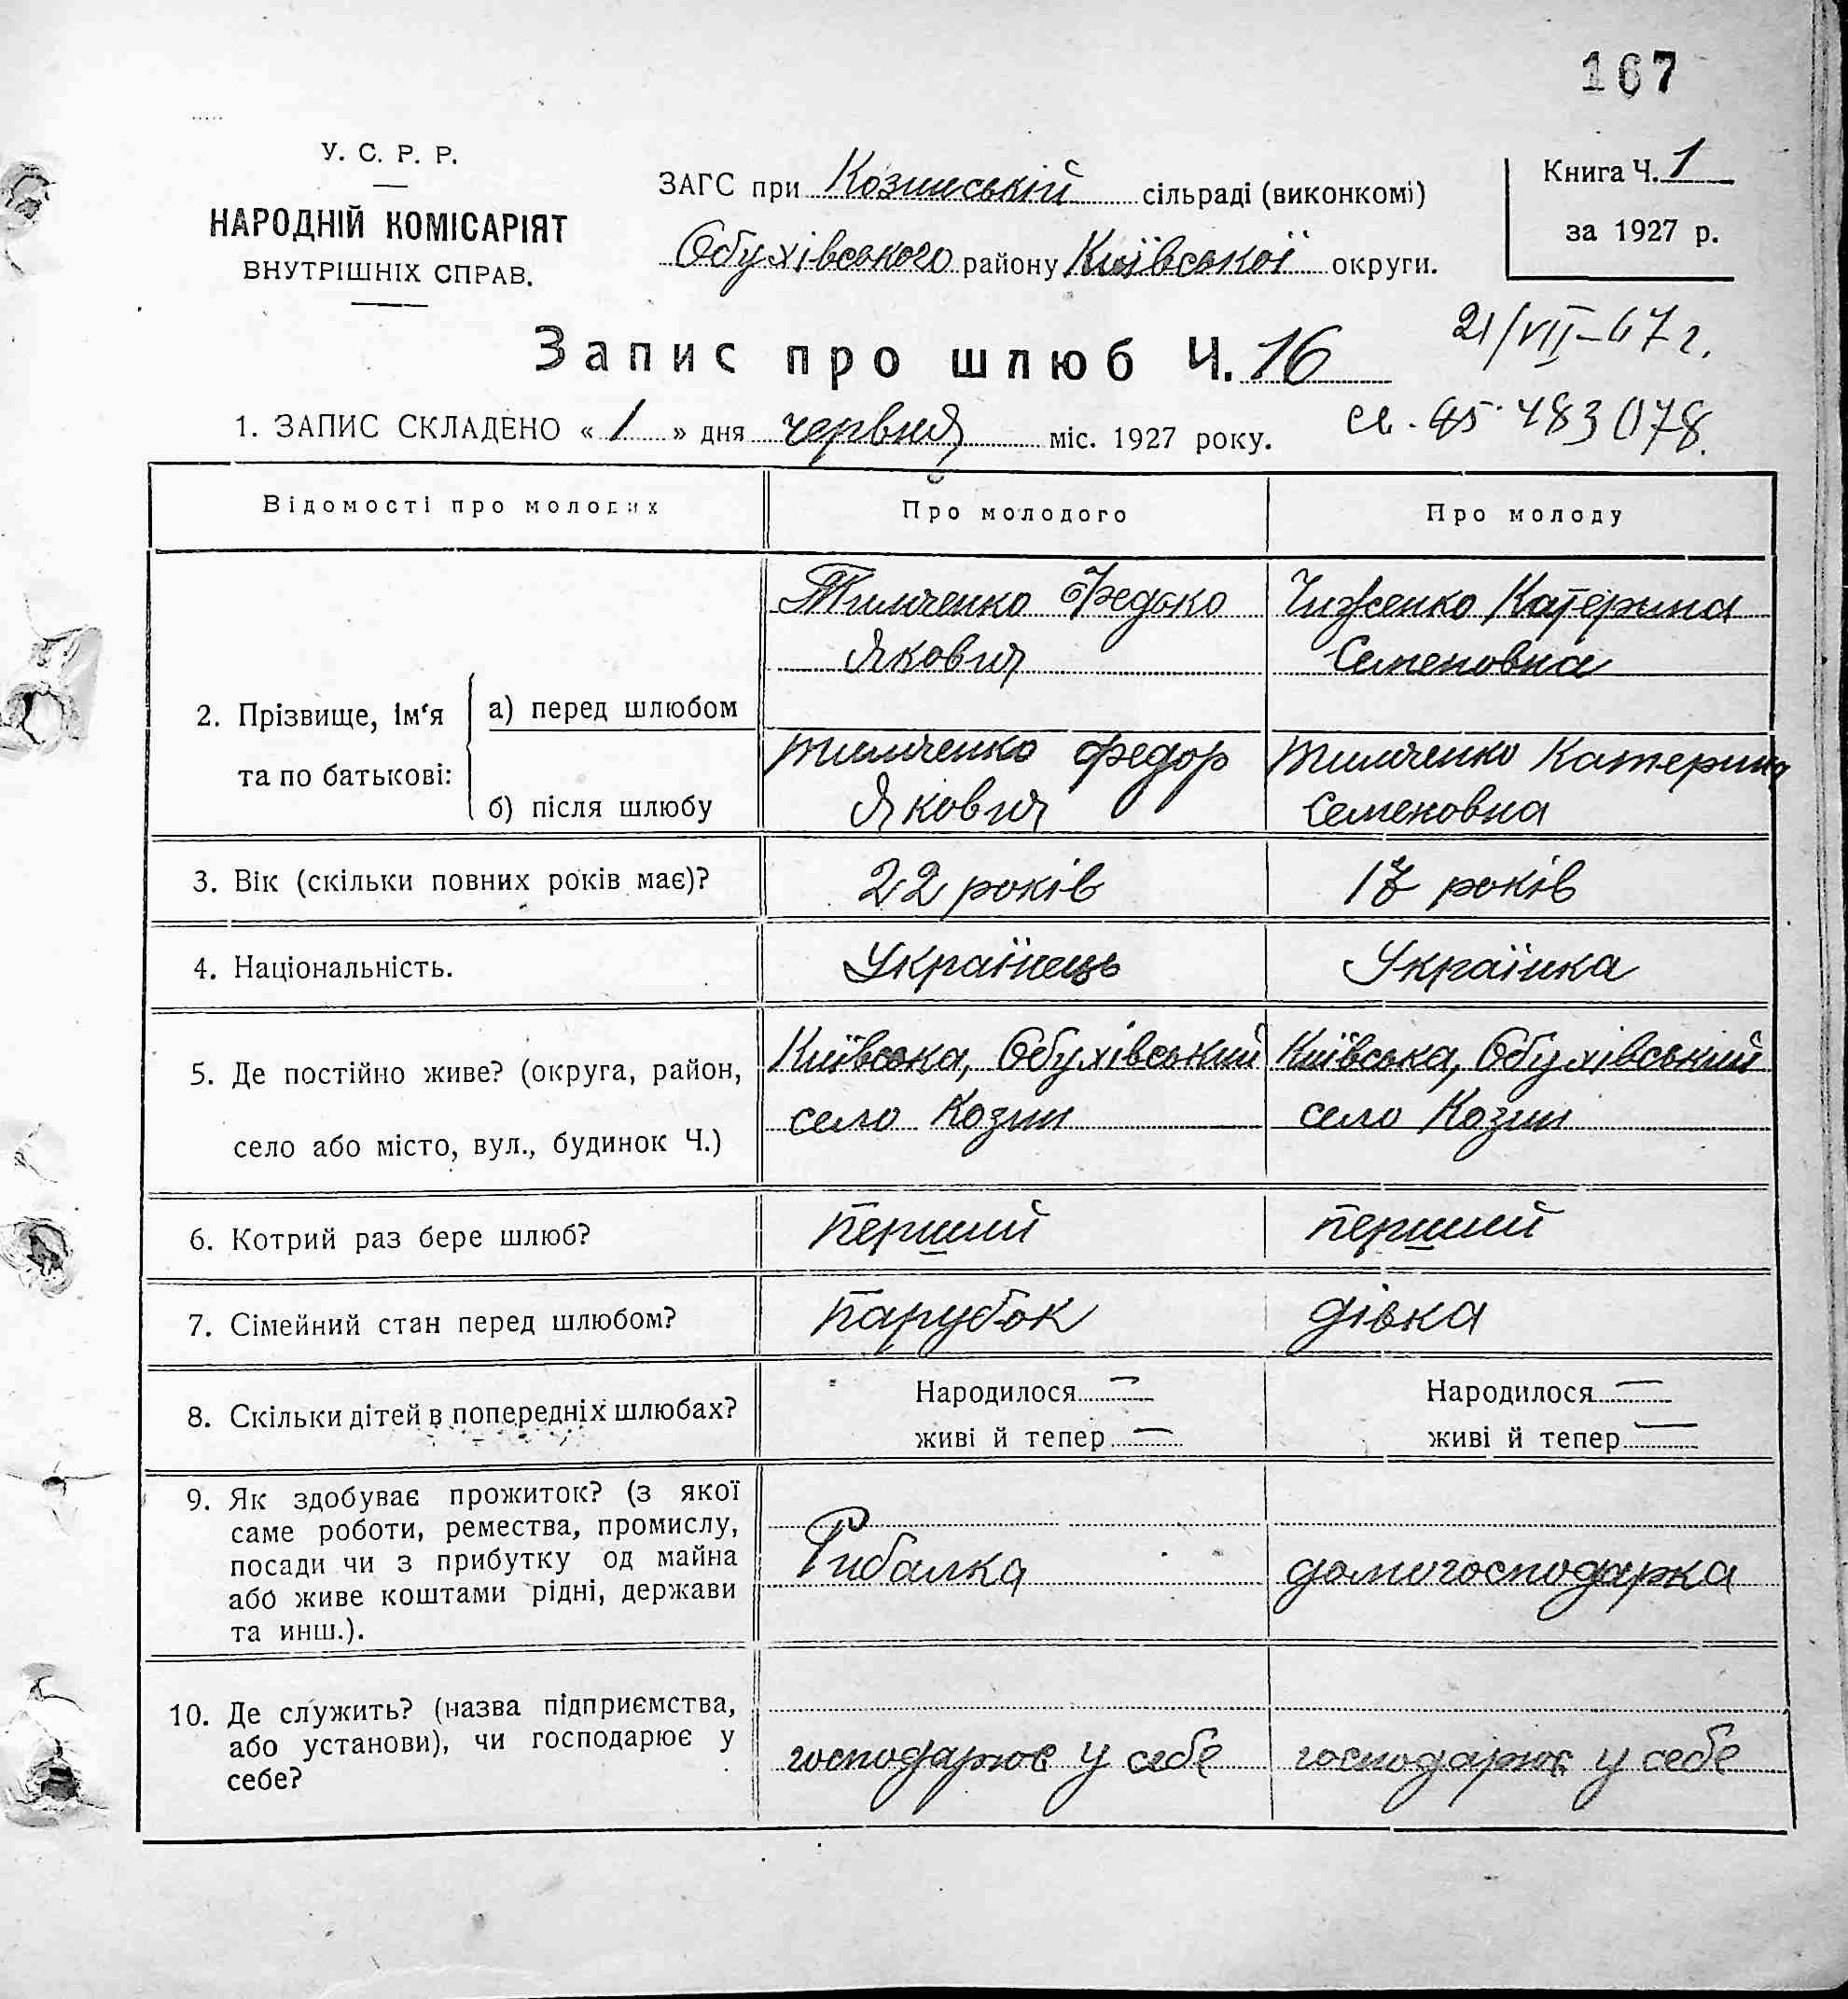 167
У. С. Р. Р.
НАРОДНІЙ КОМІСАРІЯТ
ВНУТРІШНІХ СПРАВ.
ЗАГС при Козинській сільраді (виконкомі)
Обухівського району Київської округи.
Книга Ч. 1
за 1927 р.
Запис про шлюб Ч. 16
21/VII-67 г.
1. ЗАПИС СКЛАДЕНО « 1 » дня червня міс. 1927 року.
483078.
Відомості про молодих
Про молодого
Про молоду
2. Прізвище, ім'я та по батькові:
а) перед шлюбом
Тимченко Федько
Якович
Чиженко Катерина
Семеновна
б) після шлюбу
Тимченко Федор
Якович
Тимченко Катерина
Семеновна
3. Вік (скільки повних років має)?
22 років
17 років
4. Національність.
Українець
Українка
5. Де постійно живе? (округа, район,
село або місто, вул., будинок Ч.)
Київська, Обухівський
село Козин
Київська, Обухівський
село Козин
6. Котрий раз бере шлюб?
перший
перший
7. Сімейний стан перед шлюбом?
парубок
дівка
8. Скільки дітей в попередніх шлюбах?
Народилося —
живі й тепер —
Народилося —
живі й тепер —
9. Як здобуває прожиток? (з якої
саме роботи, ремества, промислу,
посади чи з прибутку од майна
або живе коштами рідні, держави
та инш.).
Рибалка
домогосподарка
10. Де служить? (назва підприємства,
або установи), чи господарює у
себе?
господарює у себе
господарює у себе